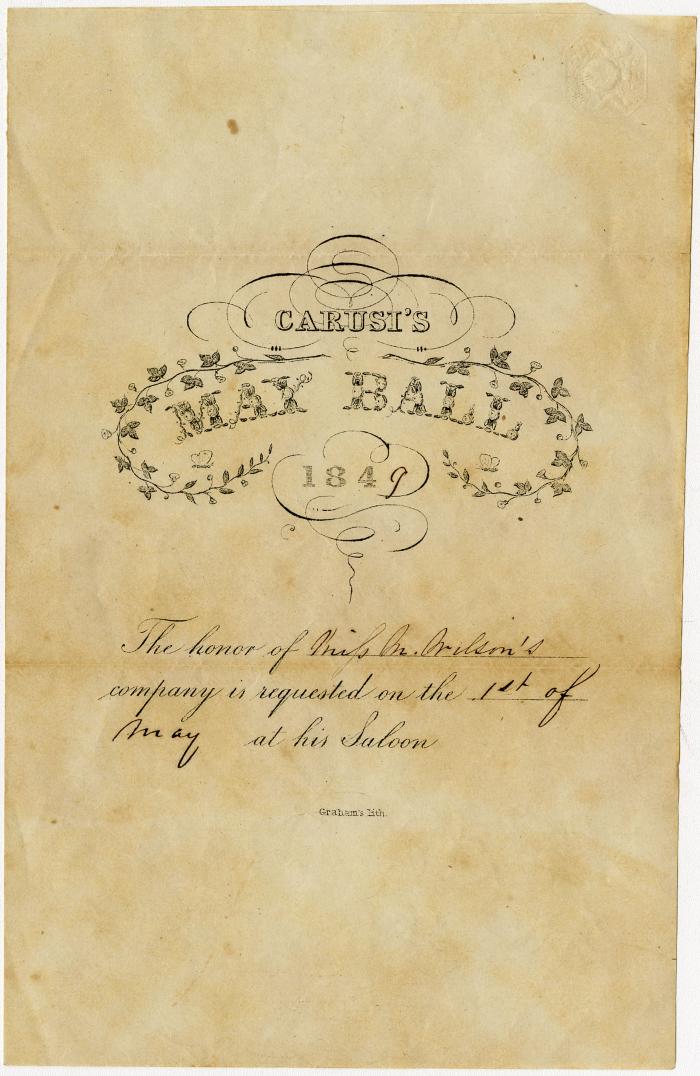 CARUSI'S
MAY BALL
1849
The honor of Miss M. Wilson's
company is requested on the 1st of
May at his Saloon
Graham's lith.